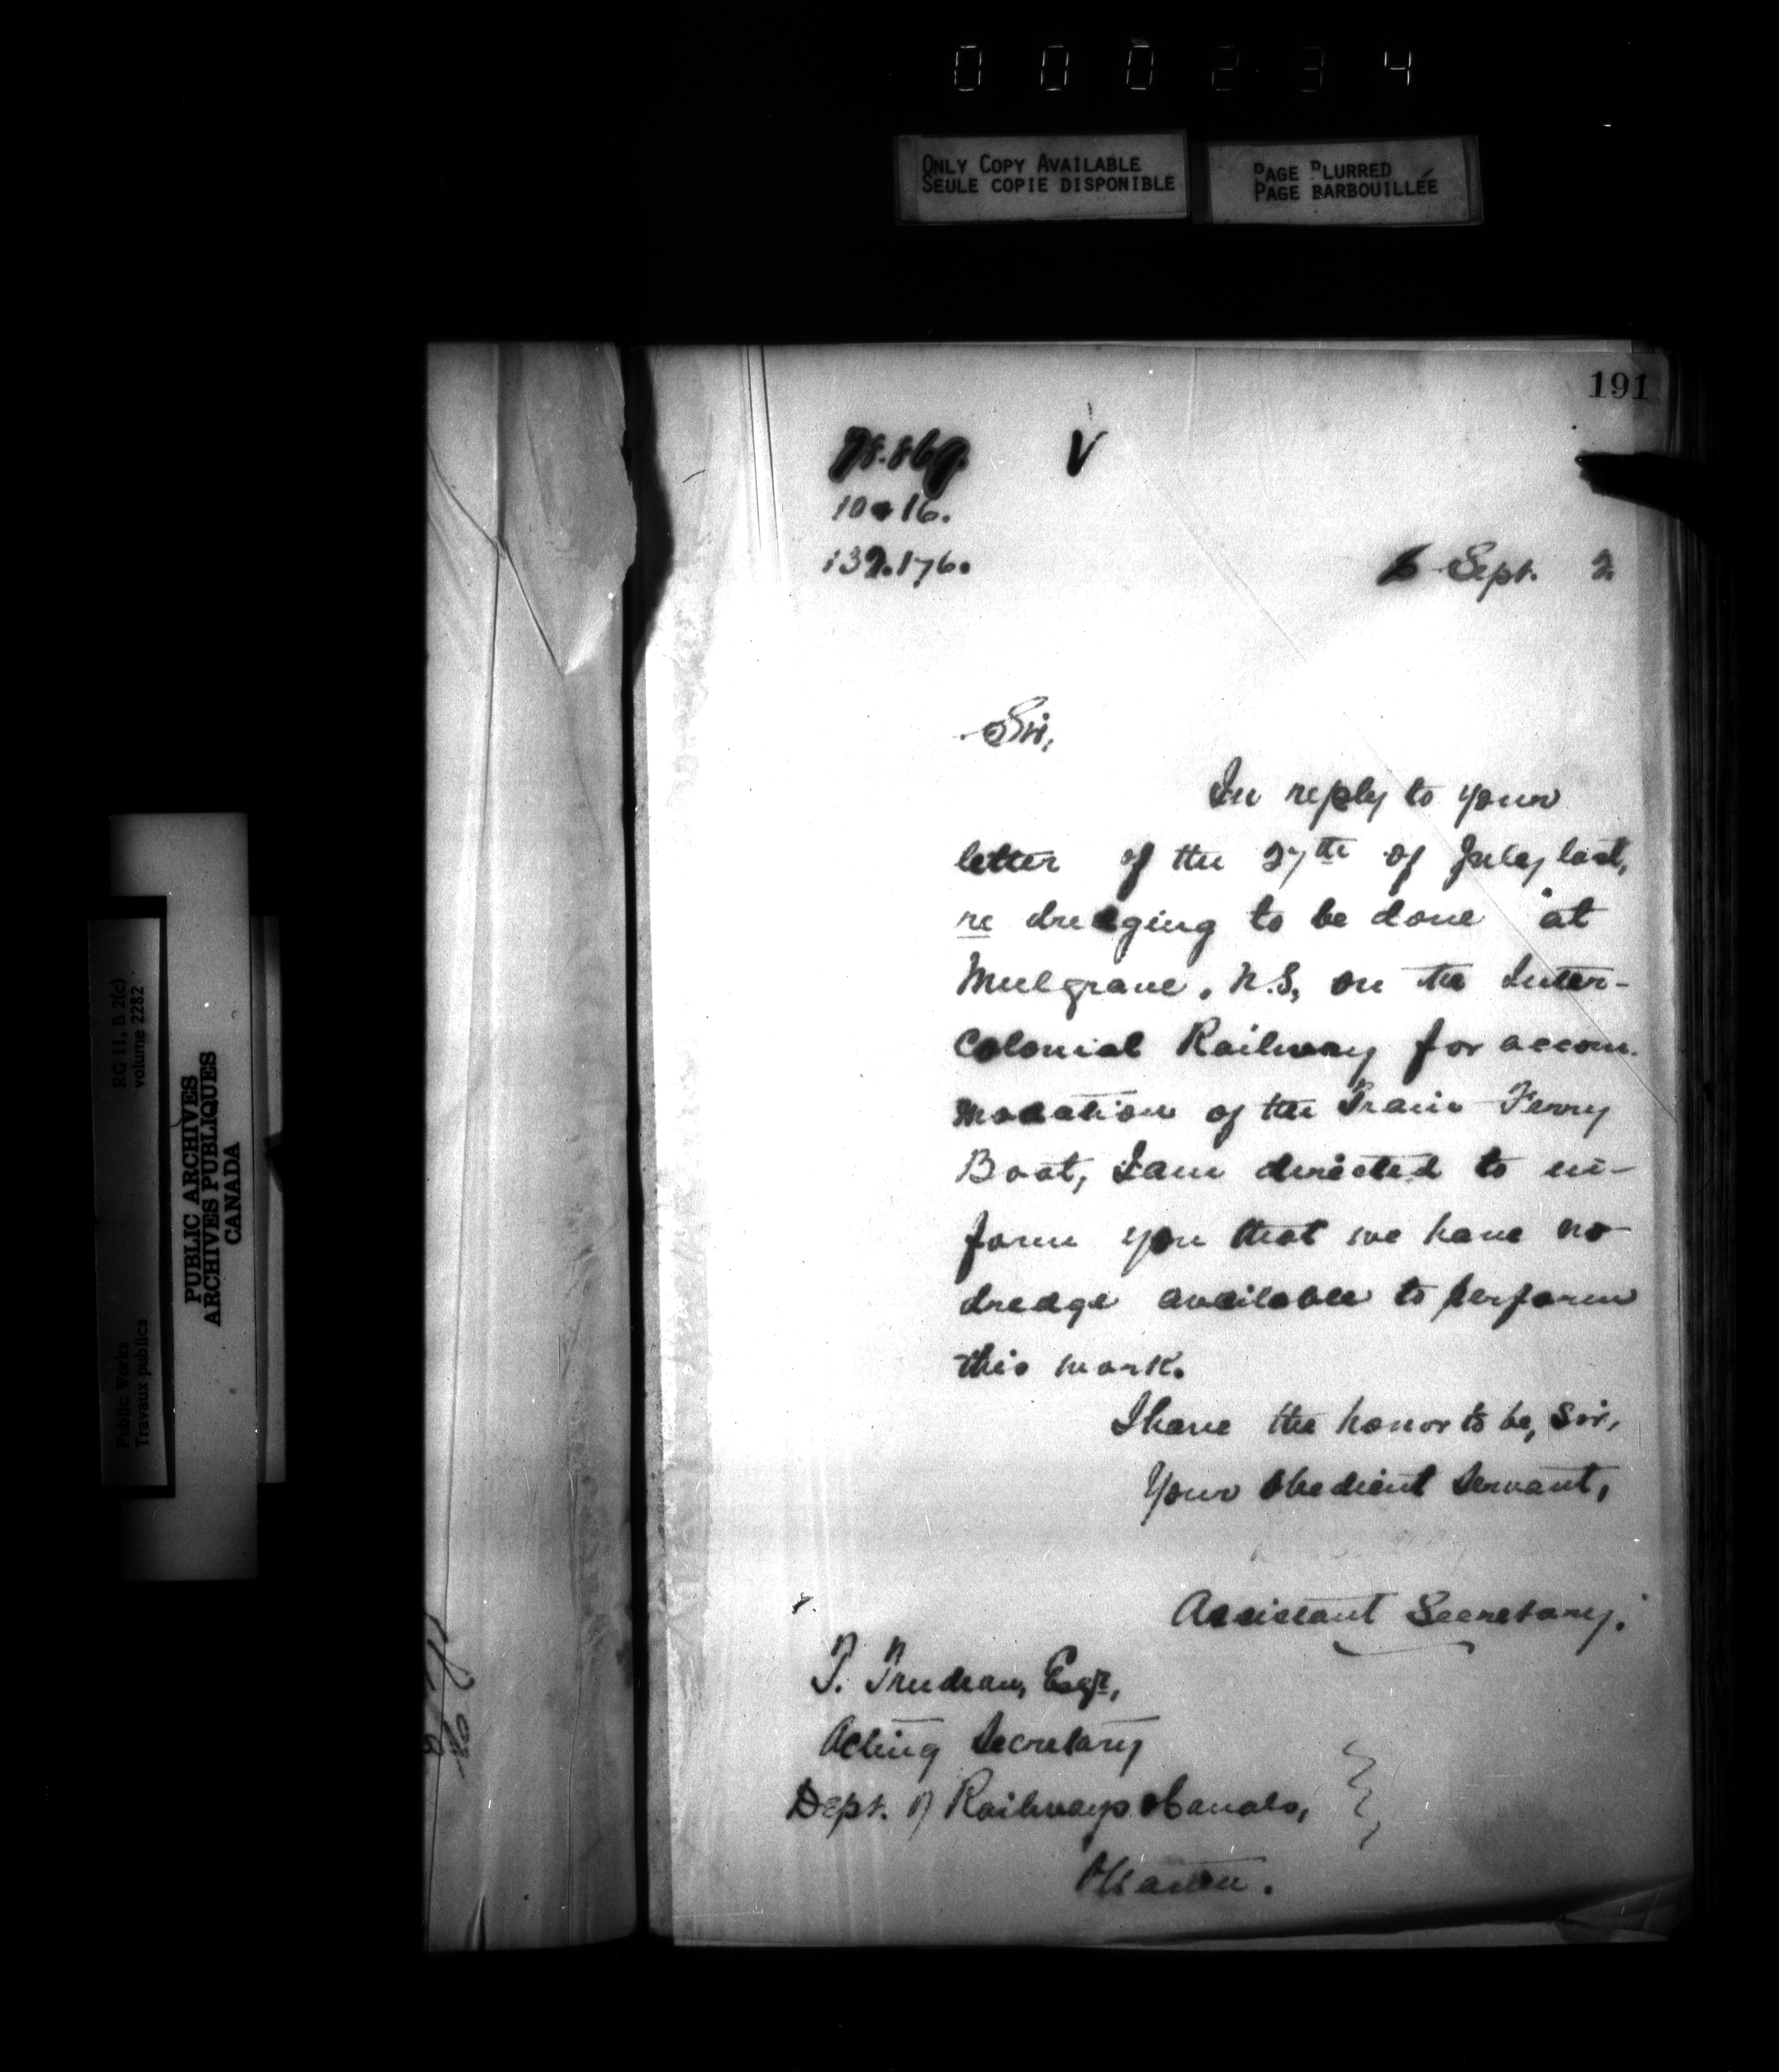 000234
ONLY COPY AVAILABLE
SEULE COPIE DISPONIBLE
PAGE BLURRED
PAGE BARBOUILLÉE
191
V
132.176.
6 Sept. 2
Sir,
In reply to your
letter of the 27th of July last,
re dredging to be done at
Mulgrave, N.S, on the Inter-
colonial Railway for accom.
modation of the Train Ferry
Boat, I am directed to in-
form you that we have no
dredge available to perform
this work.
I have the honor to be, Sir,
Your obedient servant,
Assistant Secretary.
T. Trudeau, Esqr,
Acting Secretary
Dept. of Railways & Canals,
Ottawa.
RG 11, B 2(c)
volume 2282
PUBLIC ARCHIVES
ARCHIVES PUBLIQUES
CANADA
Public Works
Travaux publics